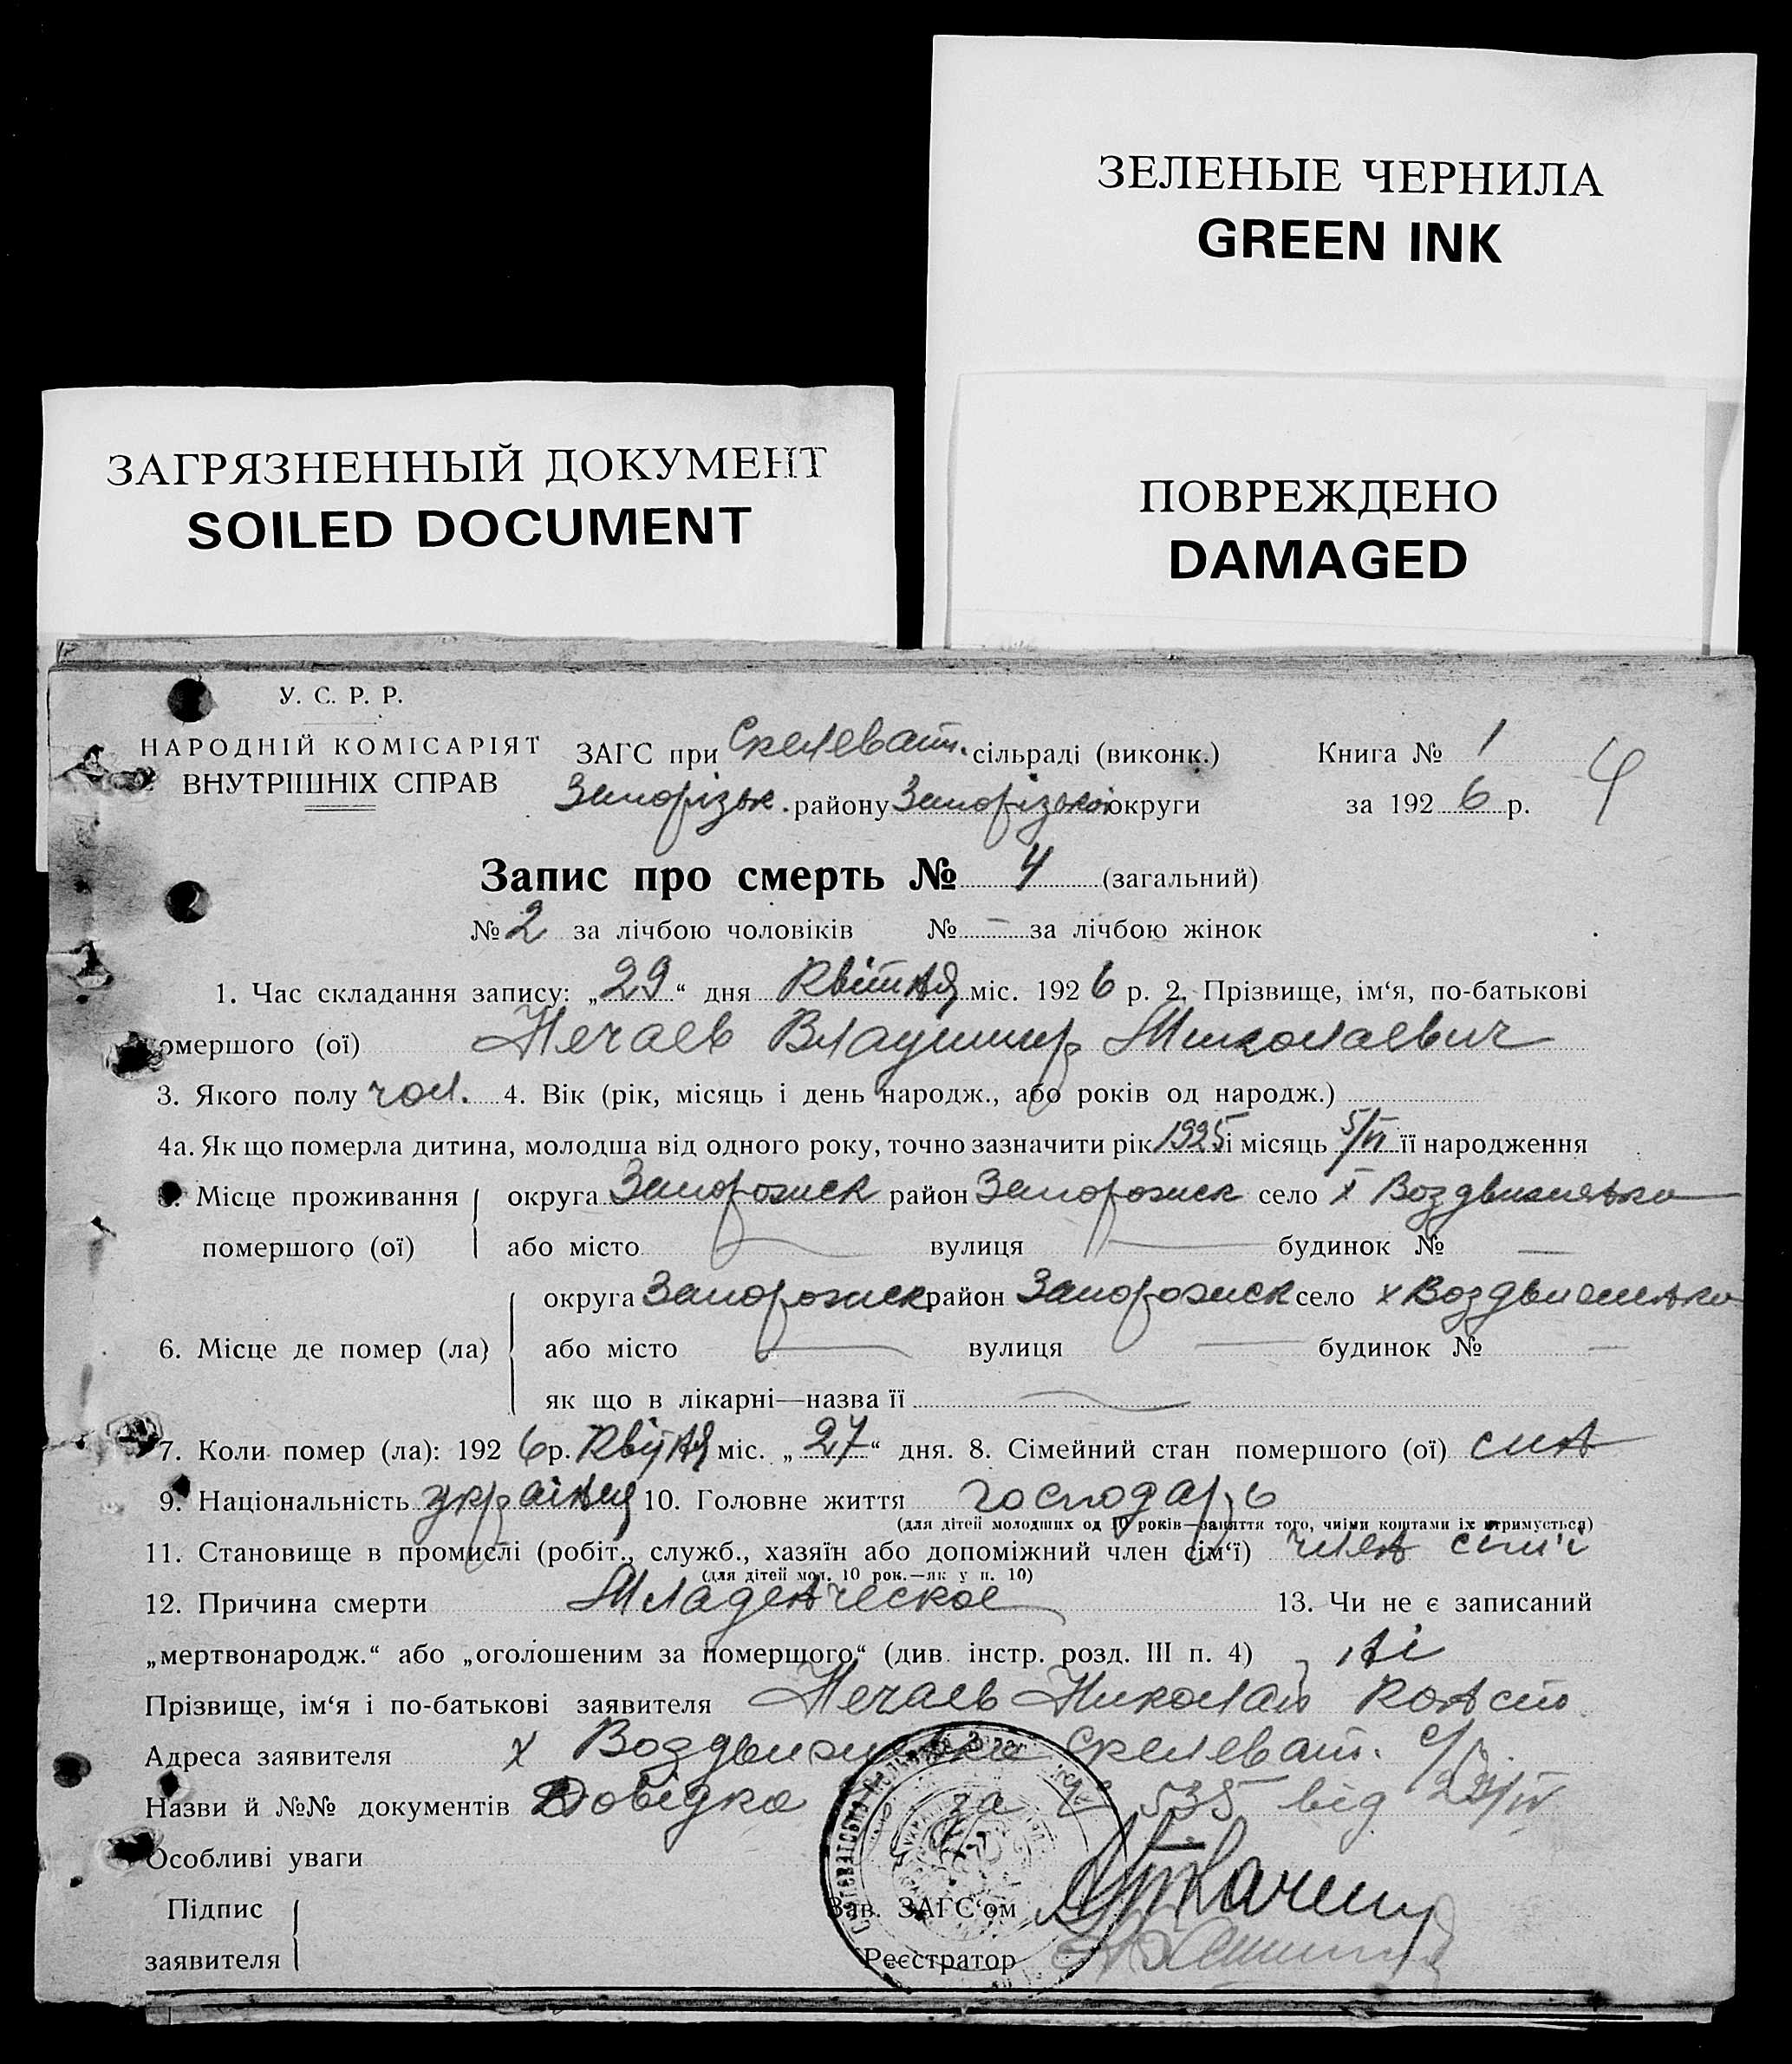 ЗЕЛЕНЫЕ ЧЕРНИЛА
GREEN INK
ЗАГРЯЗНЕННЫЙ ДОКУМЕНТ
SOILED DOCUMENT
ПОВРЕЖДЕНО
DAMAGED
У. С. Р. Р.
НАРОДНІЙ КОМІСАРІЯТ
ВНУТРІШНІХ СПРАВ
ЗАГС при Скелеват. сільраді (виконк.)
Книга № 1
4
Запорізьк. району Запорізької округи
за 1926 р.
Запис про смерть № 4 (загальний)
№ 2 за лічбою чоловіків № — за лічбою жінок
1. Час складання запису: „29“ дня Квітня міс. 1926 р. 2. Прізвище, ім‘я, по-батькові
омершого (ої) Нечаев Владимир Миколаевич
3. Якого полу чол. 4. Вік (рік, місяць і день народж., або років од народж.)
4а. Як що померла дитина, молодша від одного року, точно зазначити рік 1925 і місяць 5/VI її народження
Місце проживання округа Запорожск район Запорожск село х Воздвиженька
помершого (ої) або місто — вулиця — будинок № —
округа Запорожск район Запорожск село х Воздвиженька
6. Місце де помер (ла) або місто — вулиця — будинок № —
як що в лікарні—назва її —
7. Коли помер (ла): 1926 р. Квітня міс. „27“ дня. 8. Сімейний стан помершого (ої) син
9. Національність українця 10. Головне життя господарь
(для дітей молодших од 10 років—заняття того, чиїми коштами їх утримується)
11. Становище в промислі (робіт., служб., хазяїн або допоміжний член сім‘ї) член сім'ї
(для дітей мол. 10 рок.—як у п. 10)
12. Причина смерти Младенческое 13. Чи не є записаний
„мертвонародж.“ або „оголошеним за помершого“ (див. інстр. розд. III п. 4) ні
Прізвище, ім‘я і по-батькові заявителя Нечаев Николай Конст
Адреса заявителя х Воздвиженька Скелеват. с/р
Назви й №№ документів Довідка за № 535 від 29/IV
Особливі уваги
Підпис
заявителя
Зав. ЗАГС‘ом
Реєстратор